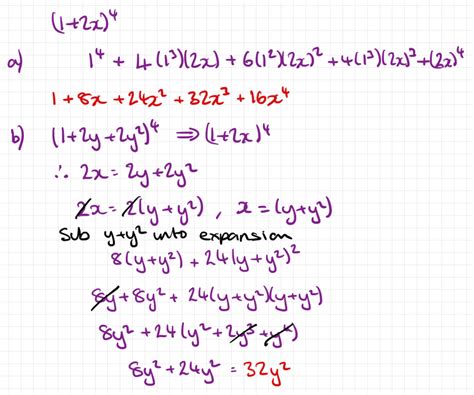 (1+2x)⁴
a) 1⁴ + 4(1³)(2x) + 6(1²)(2x)² + 4(1³)(2x)³ + (2x)⁴
1 + 8x + 24x² + 32x³ + 16x⁴
b) (1+2y+2y²)⁴ ⇒ (1+2x)⁴
∴ 2x = 2y+2y²
2x = 2(y+y²) , x = (y+y²)
Sub y+y² into expansion
8(y+y²) + 24(y+y²)²
8y + 8y² + 24(y+y²)(y+y²)
8y² + 24(y² + 2y³ + y⁴)
8y² + 24y² = 32y²